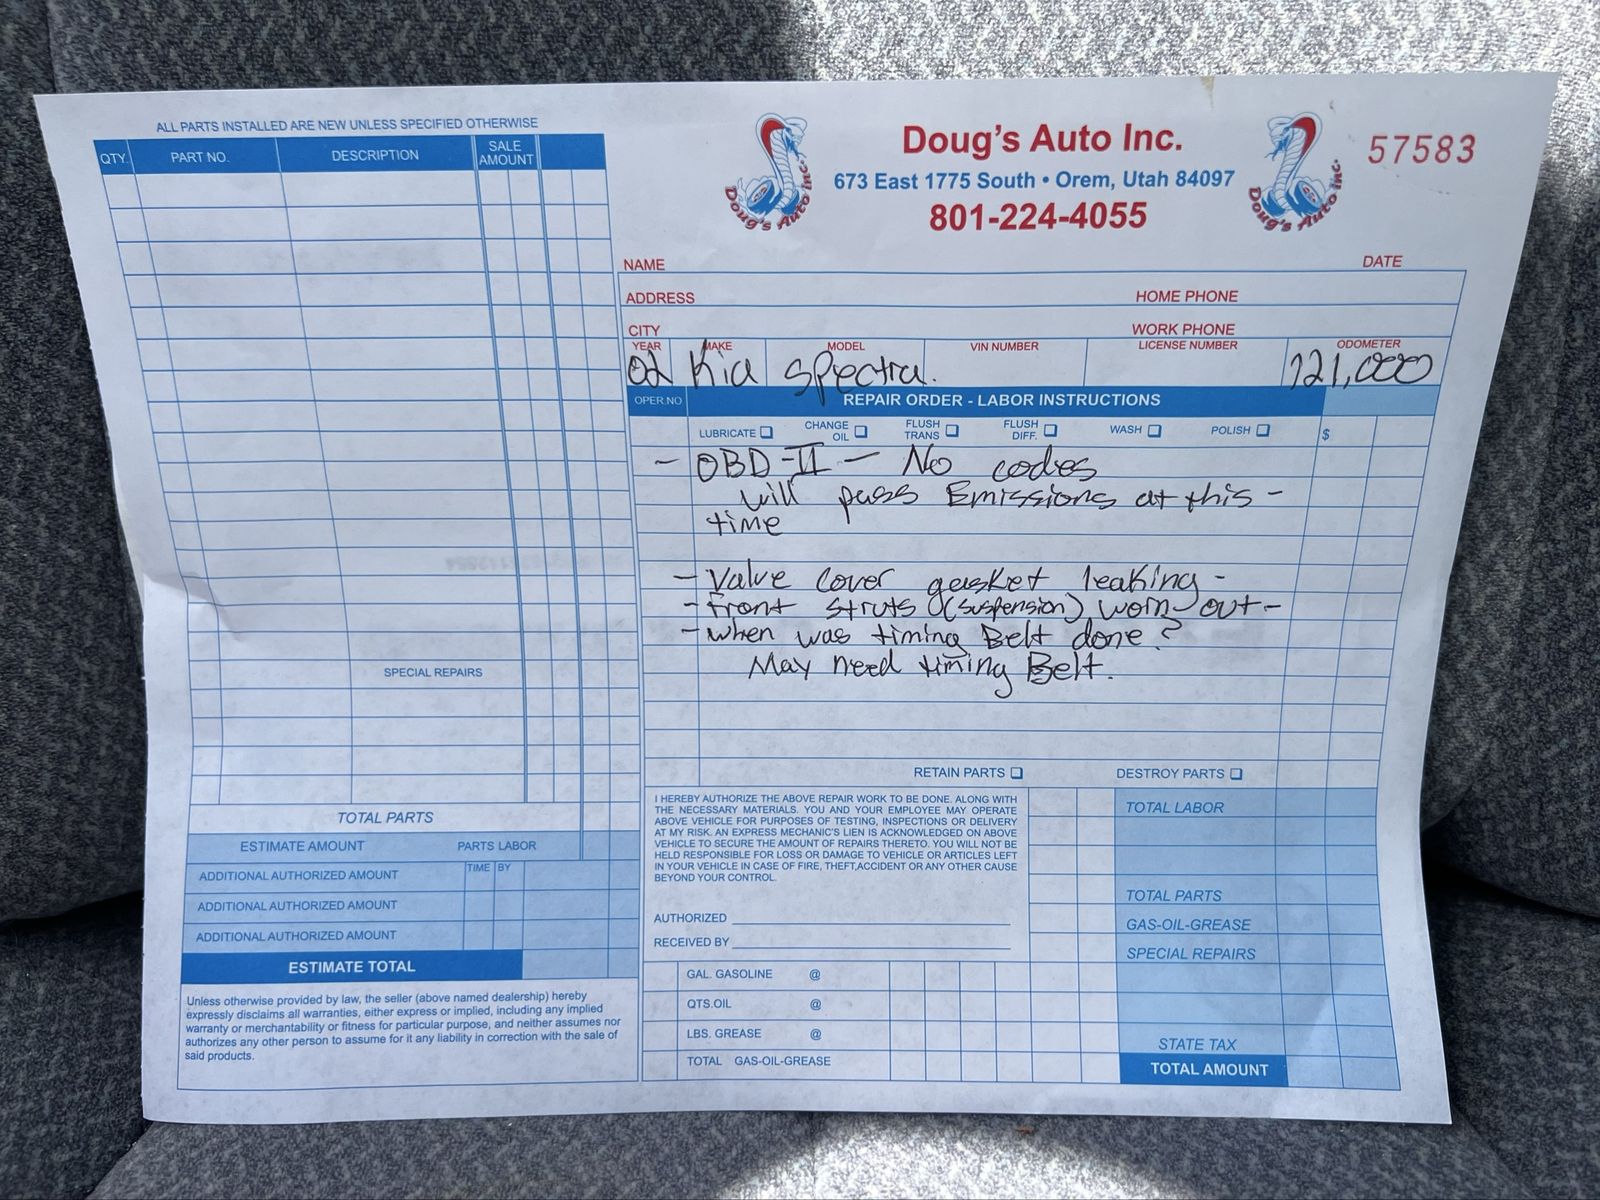 ALL PARTS INSTALLED ARE NEW UNLESS SPECIFIED OTHERWISE
QTY. PART NO. DESCRIPTION SALE AMOUNT
SPECIAL REPAIRS
TOTAL PARTS
ESTIMATE AMOUNT PARTS LABOR
ADDITIONAL AUTHORIZED AMOUNT TIME BY
ADDITIONAL AUTHORIZED AMOUNT
ADDITIONAL AUTHORIZED AMOUNT
ESTIMATE TOTAL
Unless otherwise provided by law, the seller (above named dealership) hereby
expressly disclaims all warranties, either express or implied, including any implied
warranty or merchantability or fitness for particular purpose, and neither assumes nor
authorizes any other person to assume for it any liability in correction with the sale of
said products.
Doug's Auto Inc.
Doug's Auto Inc.
673 East 1775 South • Orem, Utah 84097
801-224-4055
Doug's Auto Inc.
57583
NAME DATE
ADDRESS HOME PHONE
CITY WORK PHONE
YEAR MAKE MODEL VIN NUMBER LICENSE NUMBER ODOMETER
02 Kia Spectra. 121,000
OPER.NO REPAIR ORDER - LABOR INSTRUCTIONS
LUBRICATE CHANGE OIL FLUSH TRANS FLUSH DIFF. WASH POLISH $
- OBD-II - No codes
will pass Emissions at this -
time
- Valve cover gasket leaking -
- Front struts (suspension) worn-out -
- when was timing Belt done?
May need timing Belt.
RETAIN PARTS DESTROY PARTS
I HEREBY AUTHORIZE THE ABOVE REPAIR WORK TO BE DONE. ALONG WITH
THE NECESSARY MATERIALS. YOU AND YOUR EMPLOYEE MAY OPERATE
ABOVE VEHICLE FOR PURPOSES OF TESTING, INSPECTIONS OR DELIVERY
AT MY RISK. AN EXPRESS MECHANIC'S LIEN IS ACKNOWLEDGED ON ABOVE
VEHICLE TO SECURE THE AMOUNT OF REPAIRS THERETO. YOU WILL NOT BE
HELD RESPONSIBLE FOR LOSS OR DAMAGE TO VEHICLE OR ARTICLES LEFT
IN YOUR VEHICLE IN CASE OF FIRE, THEFT,ACCIDENT OR ANY OTHER CAUSE
BEYOND YOUR CONTROL.
AUTHORIZED
RECEIVED BY
GAL. GASOLINE @
QTS.OIL @
LBS. GREASE @
TOTAL GAS-OIL-GREASE
TOTAL LABOR
TOTAL PARTS
GAS-OIL-GREASE
SPECIAL REPAIRS
STATE TAX
TOTAL AMOUNT